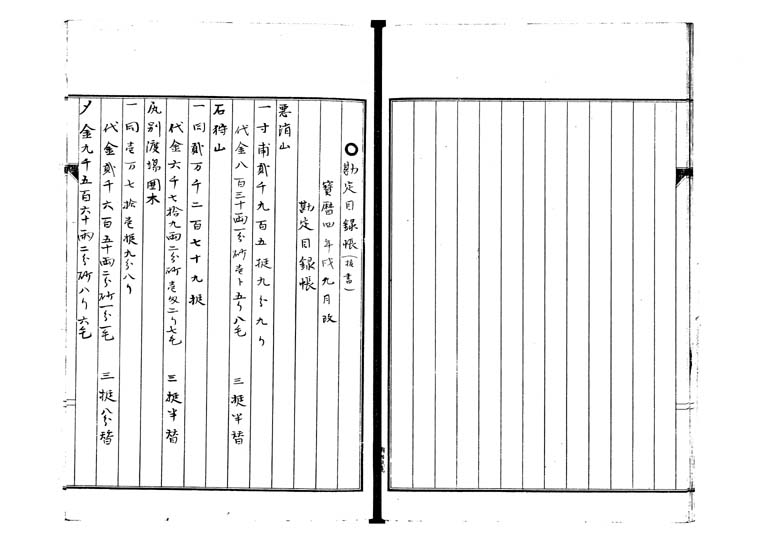 勘定目録帳(抜書)
寶暦四年戌九月改
勘定目録帳
悪消山
一寸甫貳千九百五挺九分九り
代金八百三十両一分砂壱ト五り八毛 三挺半替
石狩山
一同貳万千二百七十九挺
代金六千七拾九両二分砂壱匁二り七毛 三挺半替
尻別渡場圓木
一同壱万七拾壱挺九分八り
代金貳千六百五十両二分砂一分一毛 三挺八分替
〆金九千五百六十両二分砂八り六毛